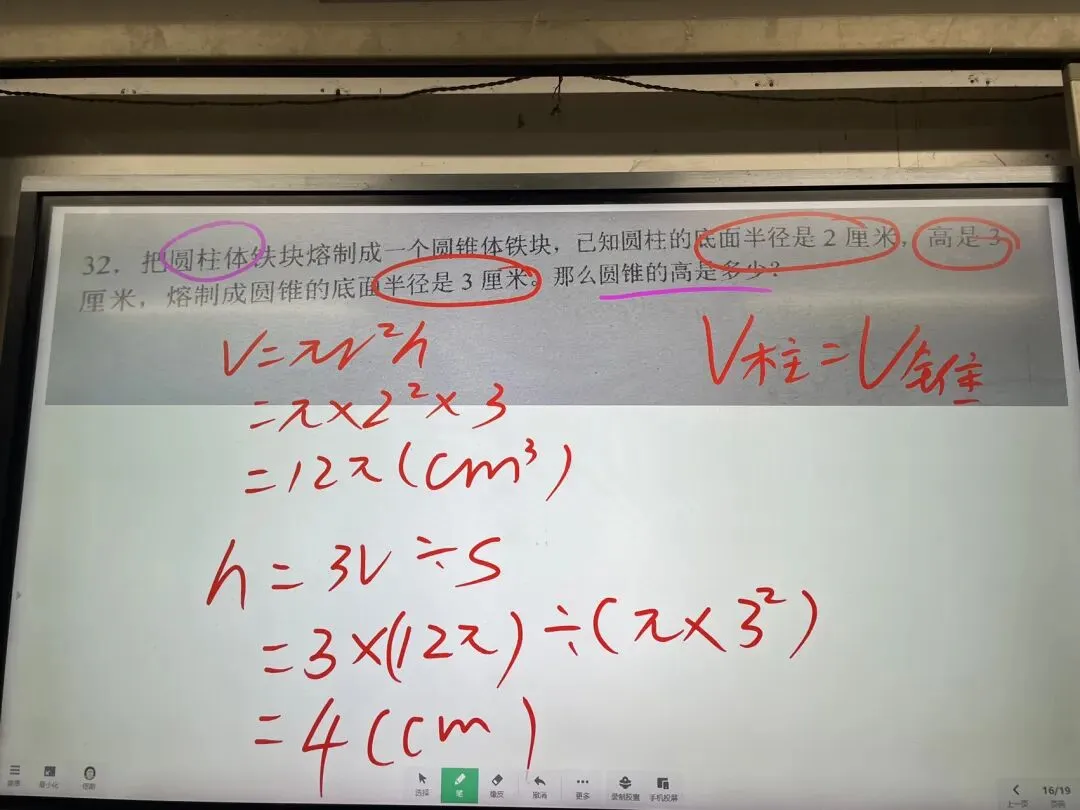 32．把圆柱体铁块熔制成一个圆锥体铁块，已知圆柱的底面半径是2厘米，高是3
厘米，熔制成圆锥的底面半径是3厘米。那么圆锥的高是多少？
V=πr²h
V柱=V锥
=π×2²×3
=12π(cm³)
h=3V÷S
=3×(12π)÷(π×3²)
=4(cm)
最小化
选择 笔 橡皮 撤消 更多 手机投屏
上一页 16/19